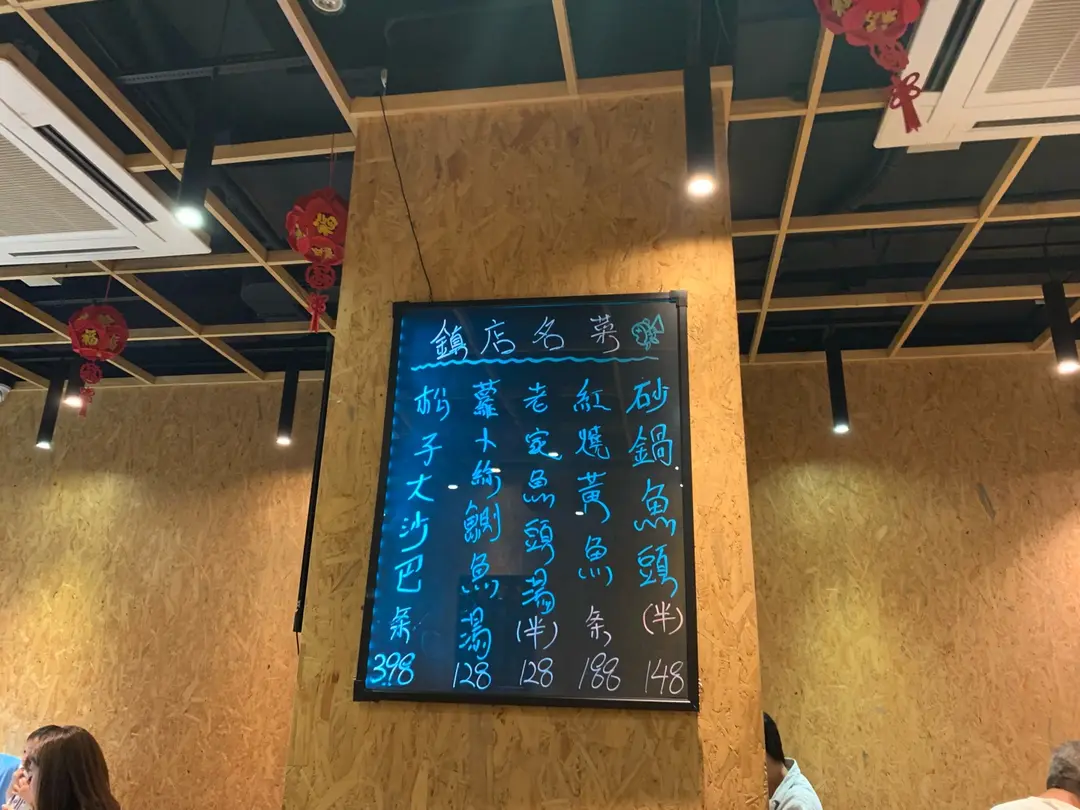 鎮店名菜
砂鍋魚頭(半)148
紅燒黃魚条188
老家魚頭湯(半)128
蘿卜絲鰂魚湯128
松子大沙巴条398
福